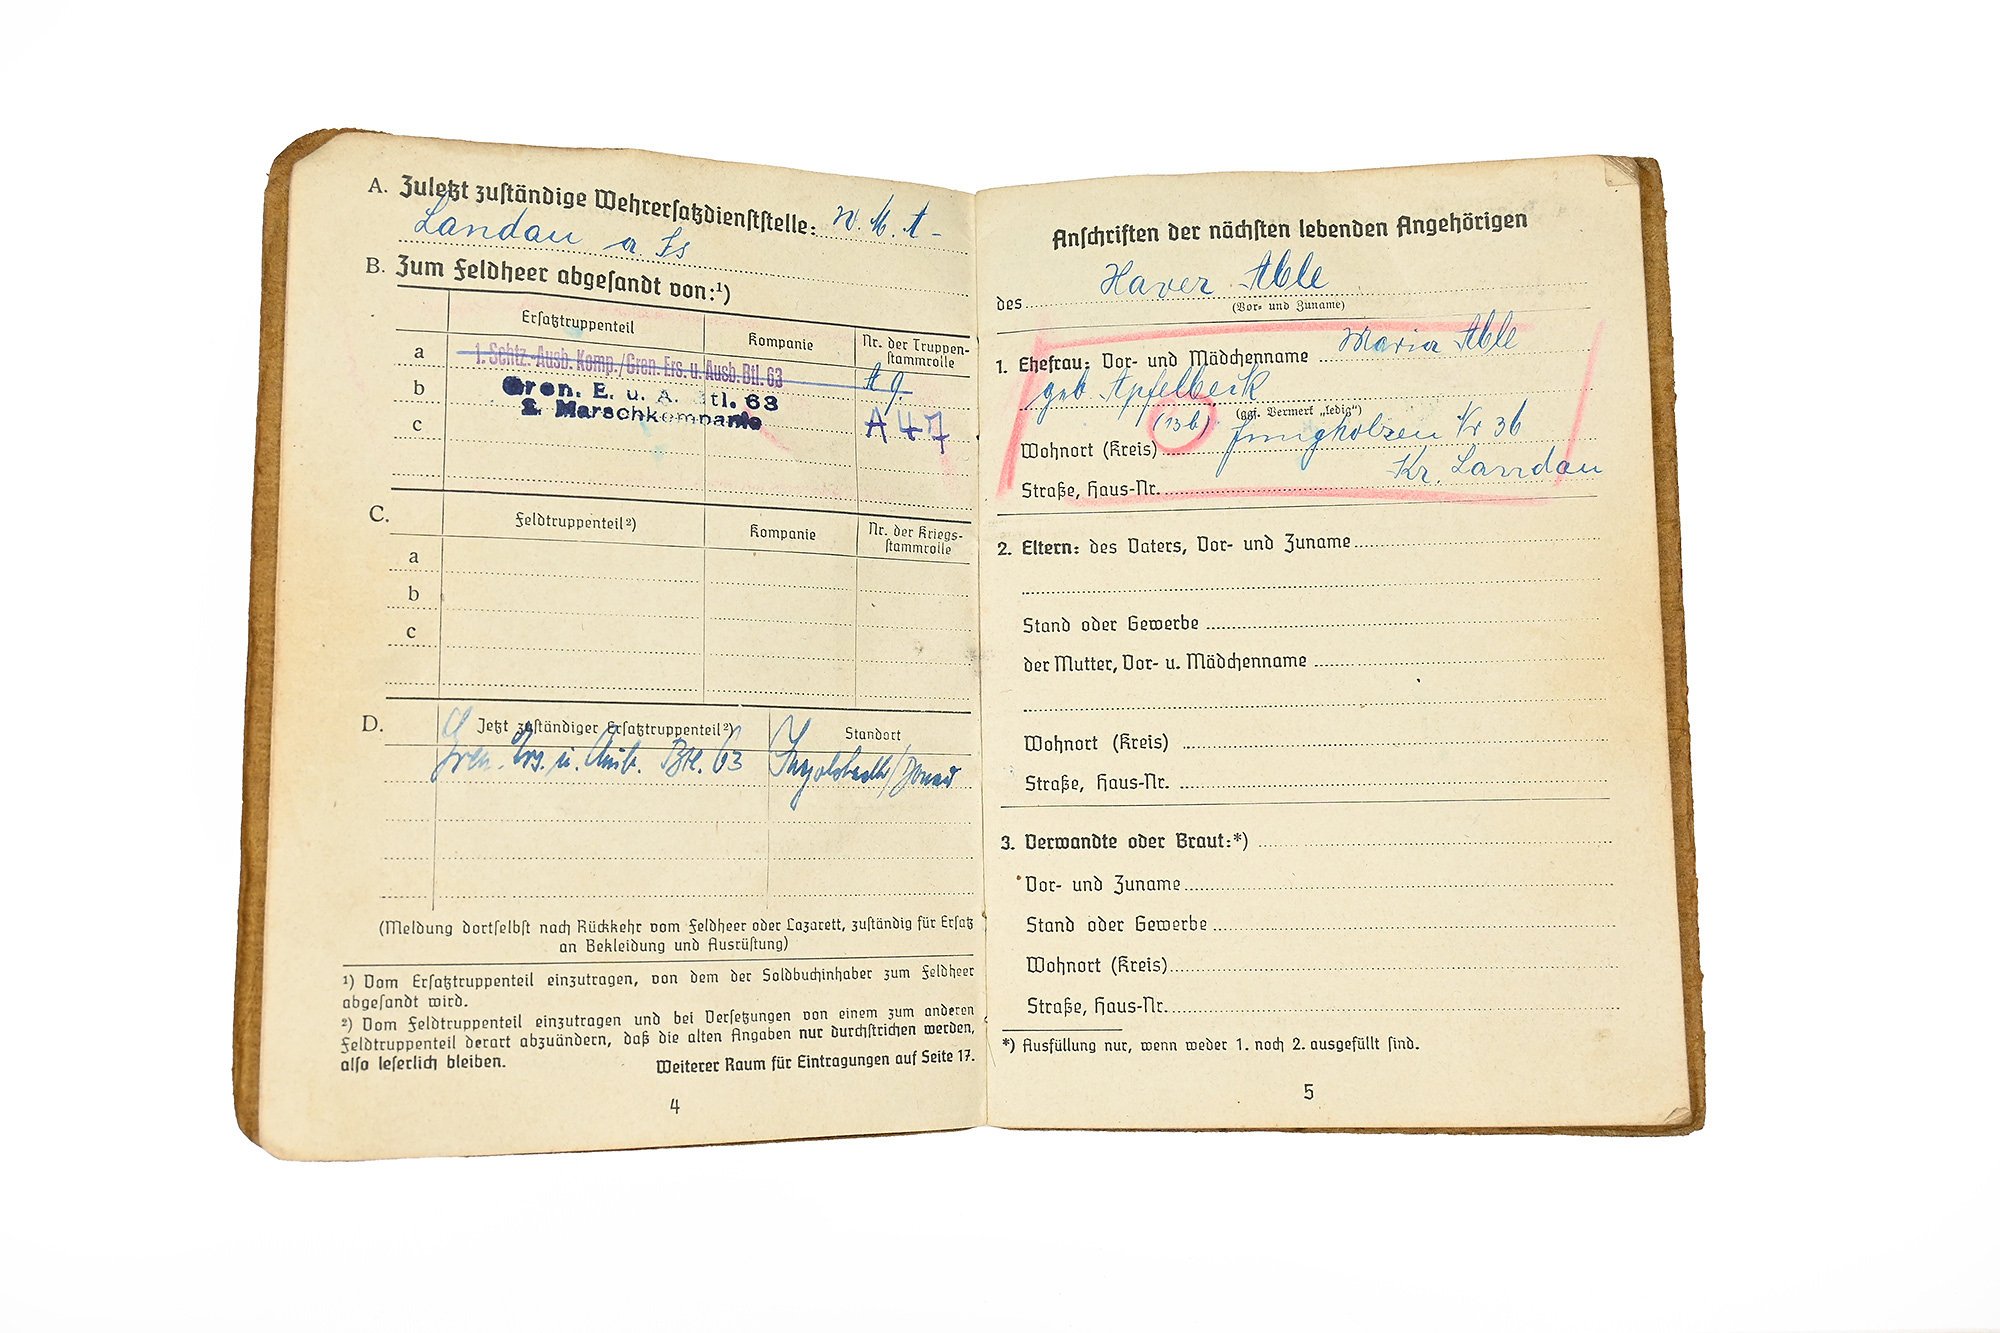 A. Zuletzt zuständige Wehrersatzdienststelle: W. M. A -
Landau a Is
B. Zum Feldheer abgesandt von:¹)
Ersatztruppenteil Kompanie Nr. der Truppen-
stammrolle
a 1. Schtz.-Ausb. Komp./Gren. Ers. u. Ausb. Btl. 63 A 9.
b Gren. E. u. A. Btl. 63
2. Marschkompanie
c A 47
C. Feldtruppenteil²) Kompanie Nr. der Kriegs-
stammrolle
a
b
c
D. Jetzt zuständiger Ersatztruppenteil²) Standort
Gren. Ers. u. Ausb. Btl. 63 Ingolstadt/Donau
(Meldung dortselbst nach Rückkehr vom Feldheer oder Lazarett, zuständig für Ersatz
an Bekleidung und Ausrüstung)
¹) Vom Ersatztruppenteil einzutragen, von dem der Soldbuchinhaber zum Feldheer
abgesandt wird.
²) Vom Feldtruppenteil einzutragen und bei Versetzungen von einem zum anderen
Feldtruppenteil derart abzuändern, daß die alten Angaben nur durchstrichen werden,
also leserlich bleiben. Weiterer Raum für Eintragungen auf Seite 17.
4
Anschriften der nächsten lebenden Angehörigen
des Xaver Able
(Vor- und Zuname)
1. Ehefrau: Vor- und Mädchenname Maria Able
geb Apfelbeck
(ggf. Vermerk „ledig")
Wohnort (Kreis) (13b) Jungholzen Nr 36
Kr. Landau
Straße, Haus-Nr.
2. Eltern: des Vaters, Vor- und Zuname
Stand oder Gewerbe
der Mutter, Vor- u. Mädchenname
Wohnort (Kreis)
Straße, Haus-Nr.
3. Verwandte oder Braut:*)
Vor- und Zuname
Stand oder Gewerbe
Wohnort (Kreis)
Straße, Haus-Nr.
*) Ausfüllung nur, wenn weder 1. noch 2. ausgefüllt sind.
5